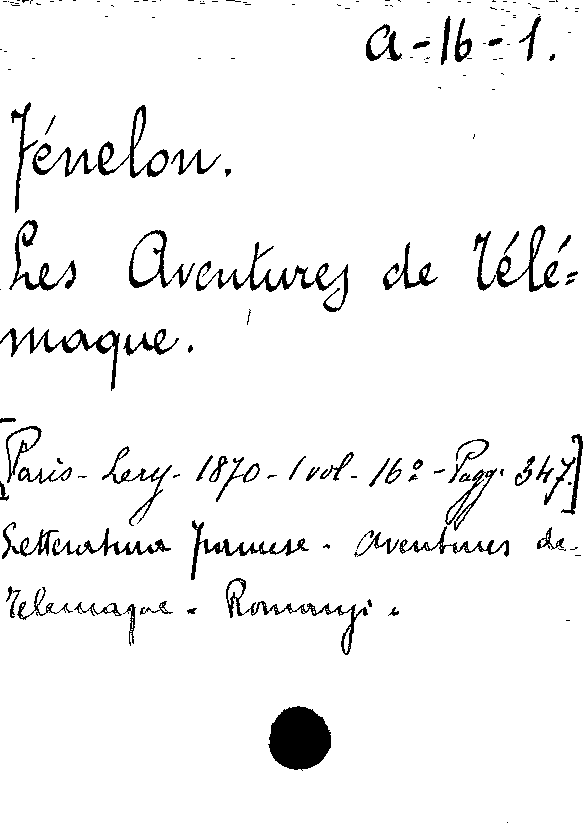 A-16-1.
Fénelon.
Les Aventures de Télé=
maque.
[Paris - Lery - 1870 - 1 vol - 16º - Pagg. 347.]
Letteratura francese - Aventures de
Telemaque - Romanzi.